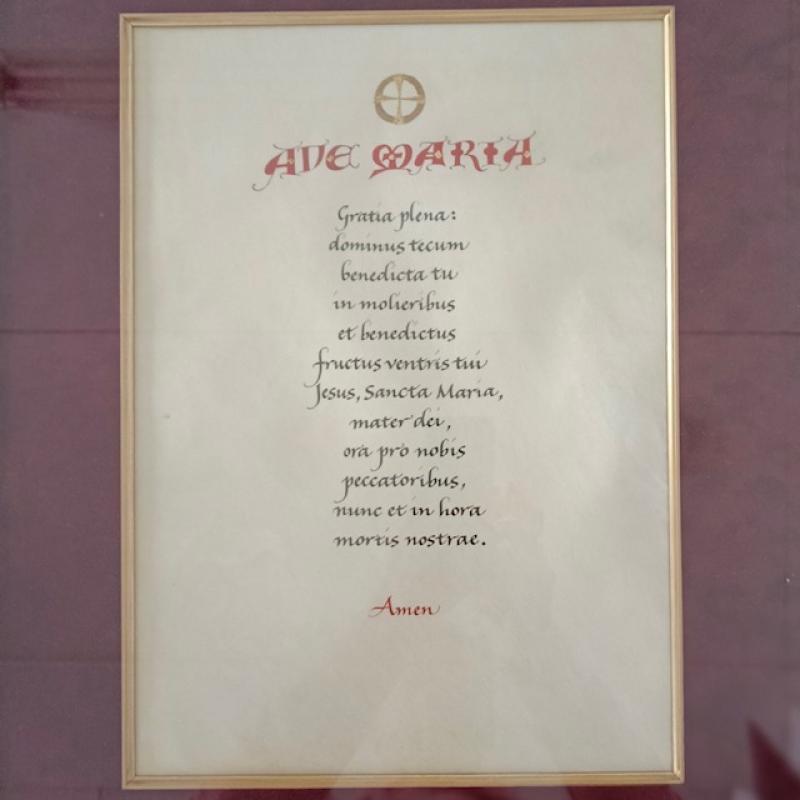 AVE MARIA
Gratia plena:
dominus tecum
benedicta tu
in molieribus
et benedictus
fructus ventris tui
Jesus, Sancta Maria,
mater dei,
ora pro nobis
peccatoribus,
nunc et in hora
mortis nostrae.
Amen